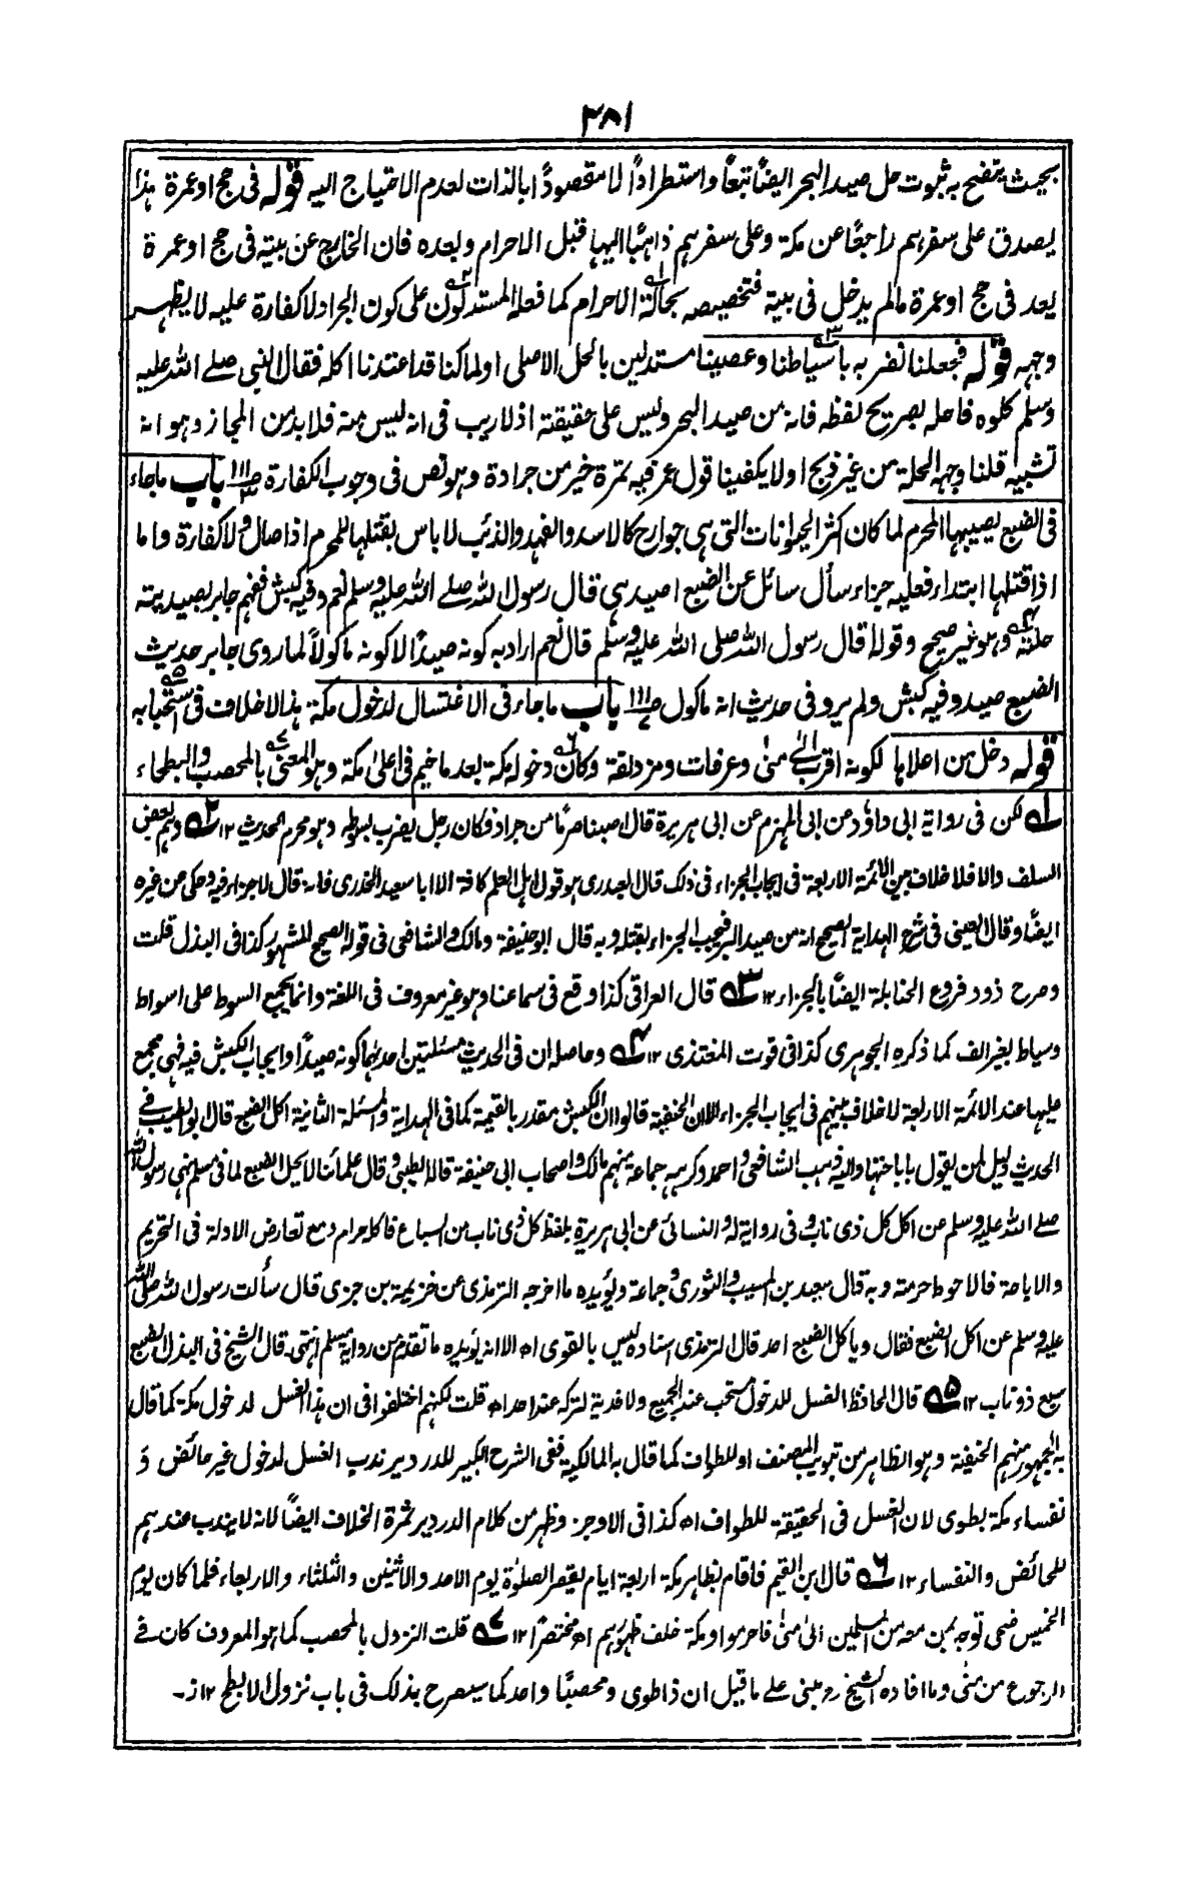 ٢٨١
بحيث يتضح به ثبوت حل صيد البحر ايضاً تبعاً واستطراداً لا مقصوداً بالذات لعدم الاحتياج اليه قوله فى حج او عمرة هذا
يصدق على سفرهم راجعًا عن مكة وعلى سفرهم ذاهبًا اليها فقبل الاحرام وبعده فان الخارج عن بيته فى حج او عمرة
يعد فى حج او عمرة ما لم يدخل فى بيته فتخصيصه بحالة الاحرام كما فعله المستدلون على كون الجراد لا كفارة عليه لا يظهر
وجهه قوله فجعلنا نضر به باسياطنا وعصينا مستدلين بالحل الاصلى او لما كنا قد اعتدنا اكله فقال النبى صلے الله عليه
وسلم كلوه فاحله بصريح لفظه فانه من صيد البحر وليس على حقيقته اذ لا ريب فى انه ليس منه فلا بد من المجاز وهو انه
تشبيه قلنا وجهه الحلة من غير ذبح اولا يكفينا قول عمر فيه تمرة خير من جرادة وهو نص فى وجوب الكفارة باب ما جاء
فى الضبع يصيبها المحرم لما كان اكثر الحيوانات التى هى جوارح كالاسد والفهد والذئب لا باس بقتلها للمحرم اذا صال ولا كفارة واما
اذا قتلها ابتداء فعليه جزاء سأل سائل عن الضبع اصيد هى قال رسول الله صلے الله عليه وسلم نعم وفيه كبش ففهم جابر بصيديته
حلته وهو غير صحيح وقوله اقال رسول الله صلى الله عليه وسلم قال نعم اراد به كونه صيدًا لا كونه ماكولاً لما روى جابر حديث
الضبع صيد وفيه كبش ولم يرو فى حديث انه ماكول باب ما جاء فى الاغتسال لدخول مكة هذا لا خلاف فى استحبابه
قوله دخل من اعلاها لكونه اقرب الى منى وعرفات ومزدلفة وكان دخوله مكة بعد ما خيم فى اعلى مكة وهو المعنى بالمحصب والبطحاء
١ه لكن فى رواية ابى داؤد عن ابى المهزم عن ابى هريرة قال اصبنا صرمًا من جراد فكان رجل يضرب بسوطه وهو محرم الحديث ١٢ ٢ه وهم بعض
السلف والا فلا خلاف بين الائمة الاربعة فى ايجاب الجزاء فى ذلك قال العبدرى هو قول اهل العلم كافة الا ابا سعيد الخدرى فانه قال لا جزاء فيه وحكى عن غيره
ايضًا وقال العينى فى شرح الهداية الصحيح انه من صيد البر فيجب الجزاء بقتله وبه قال ابو حنيفة ومالك والشافعى فى قوله الصحيح المشهور كذا فى البذل قلت
وصرح ذوو فروع الحنابلة ايضًا بالجزاء ١٢ ٣ه قال العراقى كذا وقع فى سماعنا وهو غير معروف فى اللغة وانما يجمع السوط على اسواط
وسياط بغير الف كما ذكره الجوهرى كذا فى قوت المغتذى ١٢ ٤ه وحاصله ان فى الحديث مسئلتين احدهما كونه صيدًا وايجاب الكبش فيه فهى مجمع
عليها عند الائمة الاربعة لا خلاف بينهم فى ايجاب الجزاء الا ان الحنفية قالوا ان الكبش مقدر بالقيمة كما فى الهداية والمسئلة الثانية اكل الضبع قال ابو الطيب فے
الحديث دليل لمن يقول باباحتها واليه ذهب الشافعى واحمد وكرهه جماعة منهم مالك واصحاب ابى حنيفة قاله الطيبى وقال علمائنا لا يحل الضبع لما فى مسلم نهى رسول الله
صلے الله عليه وسلم عن اكل كل ذى ناب وفى رواية له والنسائى عن ابى هريرة بلفظ كل ذى ناب من السباع فاكله حرام ومع تعارض الادلة فى التحريم
والاباحة فالاحوط حرمته وبه قال سعيد بن المسيب والثورى وجماعة ويؤيده ما اخرجه الترمذى عن خزيمة بن جزى قال سألت رسول الله صلى الله
عليه وسلم عن اكل الضبع فقال و ياكل الضبع احد قال الترمذى اسناده ليس بالقوى اه الا انه يؤيده ما تقدم من رواية مسلم انتهى قال الشيخ فى البذل الضبع
سبع ذو ناب ١٢ ٥ه قال الحافظ الغسل للدخول مستحب عند الجميع ولا فدية لتركه عند احد اه قلت لكنهم اختلفوا فى ان هذا الغسل لدخول مكة كما قال
به الجمهور منهم الحنفية وهو الظاهر من تبويب المصنف او للطواف كما قال به المالكية ففى الشرح الكبير للدردير ندب الغسل لدخول غير حائض وَ
نفساء مكة بطوى لان الغسل فى الحقيقة للطواف اه كذا فى الاوجز وظهر من كلام الدردير ثمرة الخلاف ايضًا لانه لا يندب عندهم
للحائض والنفساء ١٢ ٦ه قال ابن القيم فاقام بظاهر مكة اربعة ايام يقصر الصلوٰة يوم الاحد والاثنين والثلثاء والاربعاء فلما كان يوم
الخميس ضحى توجه بمن معه من المسلمين الى منىٰ فاحرموا ومكة خلف ظهورهم اه مختصرًا ١٢ ٧ه قلت النزول بالمحصب كما هو المعروف كان فے
الرجوع من منىٰ وما افاده الشيخ رح مبنى علے ما قيل ان ذا طوى ومحصبًا واحد كما سيصرح بذلك فى باب نزول الابطح ١٢ ز۔